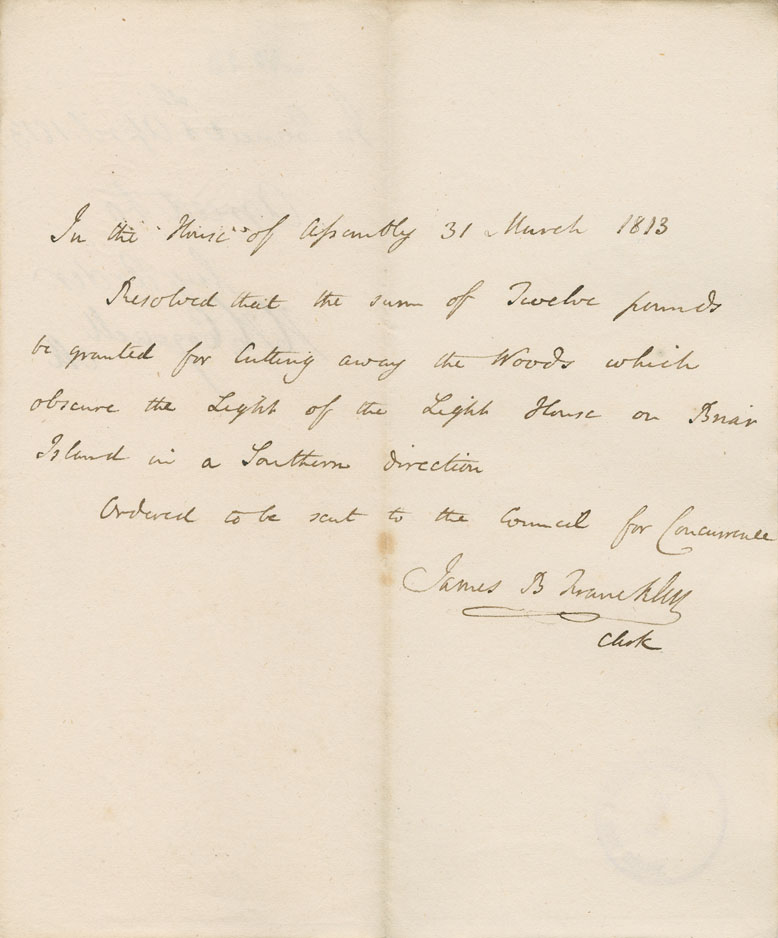 In the House of Assembly 31 March 1813
Resolved that the sum of Twelve pounds
be granted for Cutting away the Woods which
obscure the Light of the Light House on Briar
Island in a Southern direction
Ordered to be sent to the Council for Concurrence
James B Franckly
Clerk